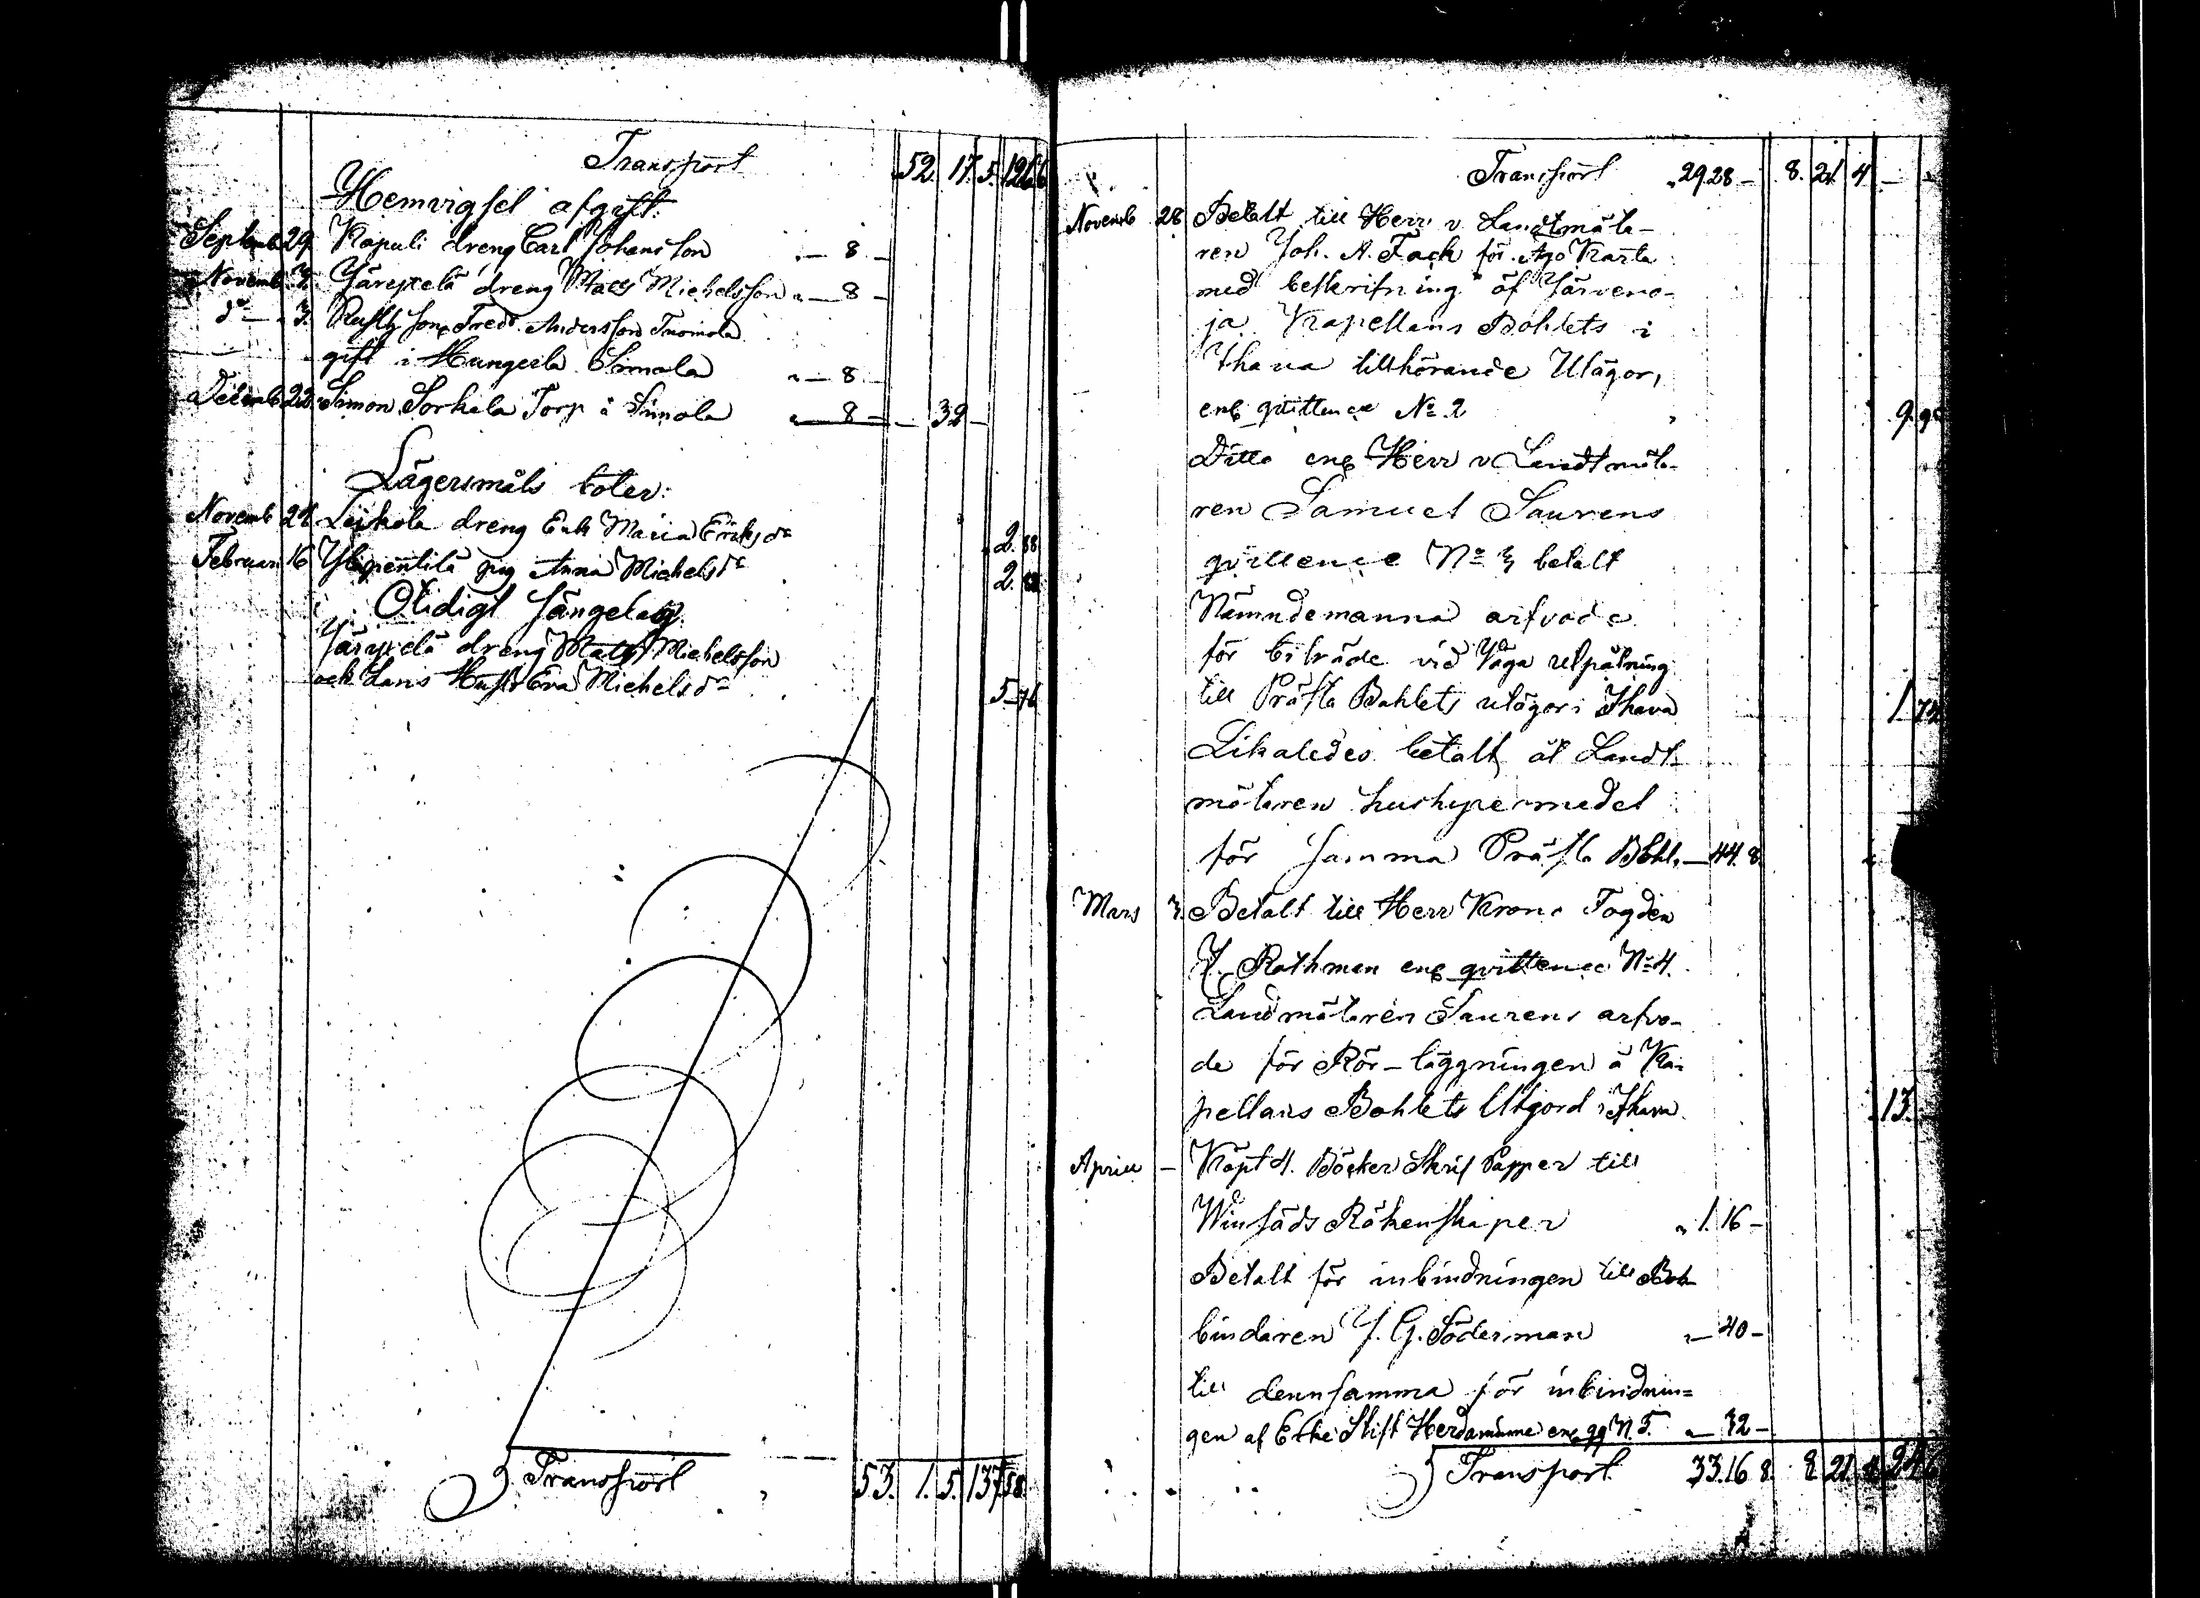 Transport 52. 17. 5. 126 6
Hemvigsel afgift:
Septemb 29. Kapuli dreng Carl Johansson " — 8 —
Novemb. 2. Järexelä dreng Mats Michelsson " — 8 —
do — 3. Rusth. son Fredr. Andersson Tuomola
gift i Hungerla Simola " — 8 —
Decemb 22. Simon Sorkela Torp i Simola " — 8 — — 32 —
Lägersmåls böter:
Novemb 24. Leikola dreng Enk Maria Eriks dr 2. 88
Februari 16 Ylipentilä pig Anna Michelsdr 2. 88
Otidigt sängelag
Järexelä dreng Mats Michelsson
och Hans Hustr Eva Michelsdr 5 76
Transport 53. 1. 5. 137 58.
Transport " 29 28 — 8. 21. 4 — —
Novemb 28 Betalt till Herr v. Landtmäta-
ren Joh. A. Fack för Ägo Karta
med beskrifning af Järveno-
ja Kapellans Bohlets i
Ihava tillhörande Utägor,
enl. qvittence No. 2 9. 9
Ditto enl. Herr v Landtmäta-
ren Samuel Saurens
qvittence No 3 betalt
Nämndemanna arfvode
för biträde vid Råga utpålning
till Prästa Bohlets utägor i Ihava 1. 72
Likaledes betalt åt Landt-
mätaren hushyremedel
för samma Prästa Bohl. — 44. 8
Mars 3. Betalt till Herr Krono Fogden
J. Rothman enl qvittence No 4.
Landmätaren Saurens arfvo-
de för Rör-läggningen å Ka-
pellans Bohlets Utjord i Ihava. 13. —
Aprill — Köpt 4. Böcker Skrif Papper till
Winsäds Räkenskaper " 1. 16 —
Betalt för inbindningen till Bok-
bindaren J. G. Söderman " — 40 —
till densamma för inbindnin=
gen af Ethe Stift Herdaminne enl qq N. 5. " — 32 —
Transport 33. 16 8. 8 21. 4. 24 6